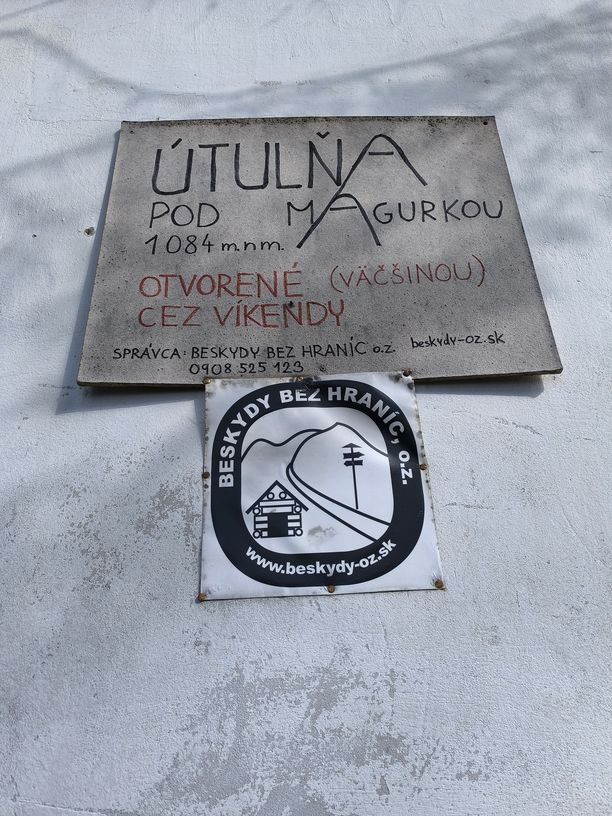 ÚTULŇA
POD MAGURKOU
1084 m.n.m.
OTVORENÉ (VÄČŠINOU)
CEZ VÍKENDY
SPRÁVCA: BESKYDY BEZ HRANÍC o.z. beskydy-oz.sk
0908 525 123
BESKYDY BEZ HRANÍC, o.z.
www.beskydy-oz.sk